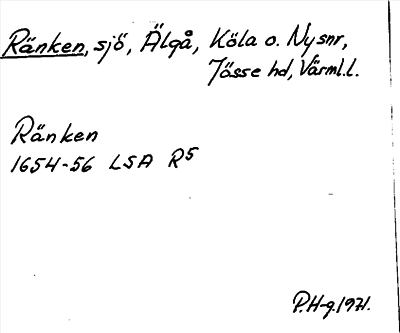 Ränken, sjö, Älgå, Köla o. Ny snr,
Jösse hd, Värml.l.
Ränken
1654-56 LSA R5
P.H-g.1971.